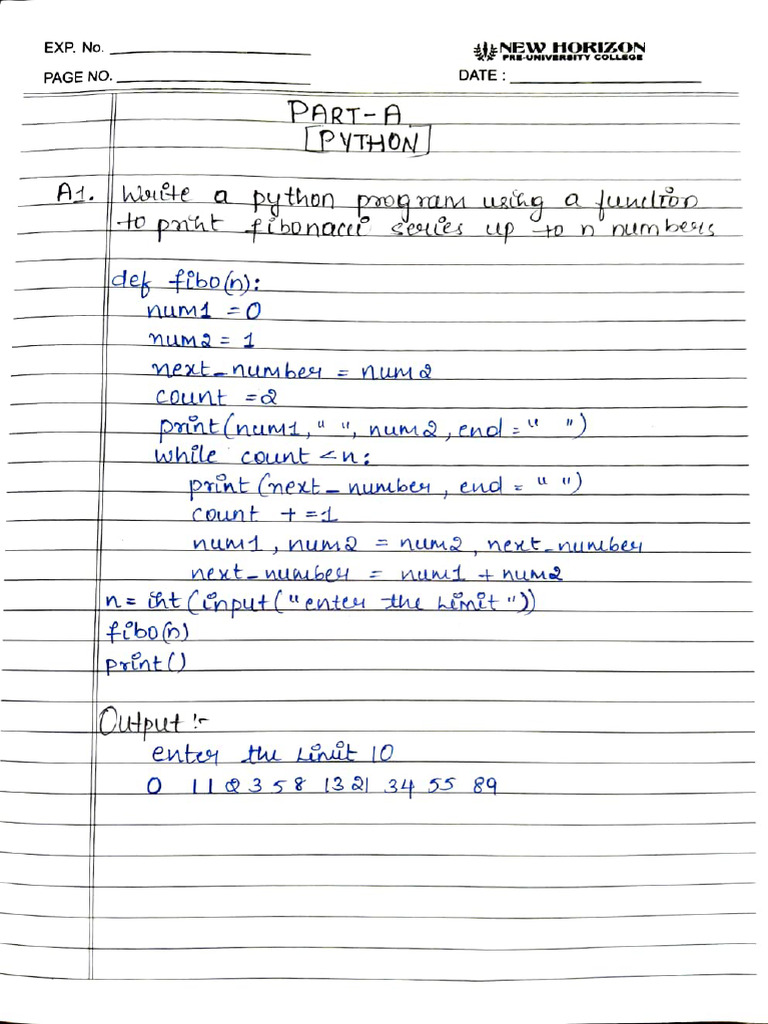 EXP. No.
NEW HORIZON
PRE-UNIVERSITY COLLEGE
PAGE NO.
DATE :
PART-A
PYTHON
A1. Write a python program using a function
to print fibonacci series up to n numbers
def fibo(n):
num1 = 0
num2 = 1
next_number = num2
count =2
print(num1," ", num2, end = " ")
while count <n:
print (next_number, end = " ")
count +=1
num1, num2 = num2, next_number
next_number = num1 + num2
n= int (input("enter the limit"))
fibo(n)
print()
Output :-
enter the limit 10
0 1 1 2 3 5 8 13 21 34 55 89